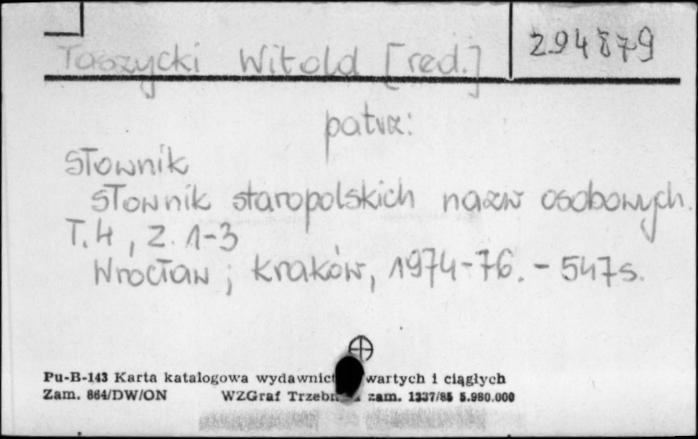 Taszycki Witold [red.]
294879
patrz:
Słownik
Słownik staropolskich nazw osobowych.
T.4, z. 1-3
Wrocław; Kraków, 1974-76. - 547s.
Pu-B-143 Karta katalogowa wydawnict wartych i ciągłych
Zam. 864/DW/ON WZGraf Trzebn zam. 1337/85 5.980.000